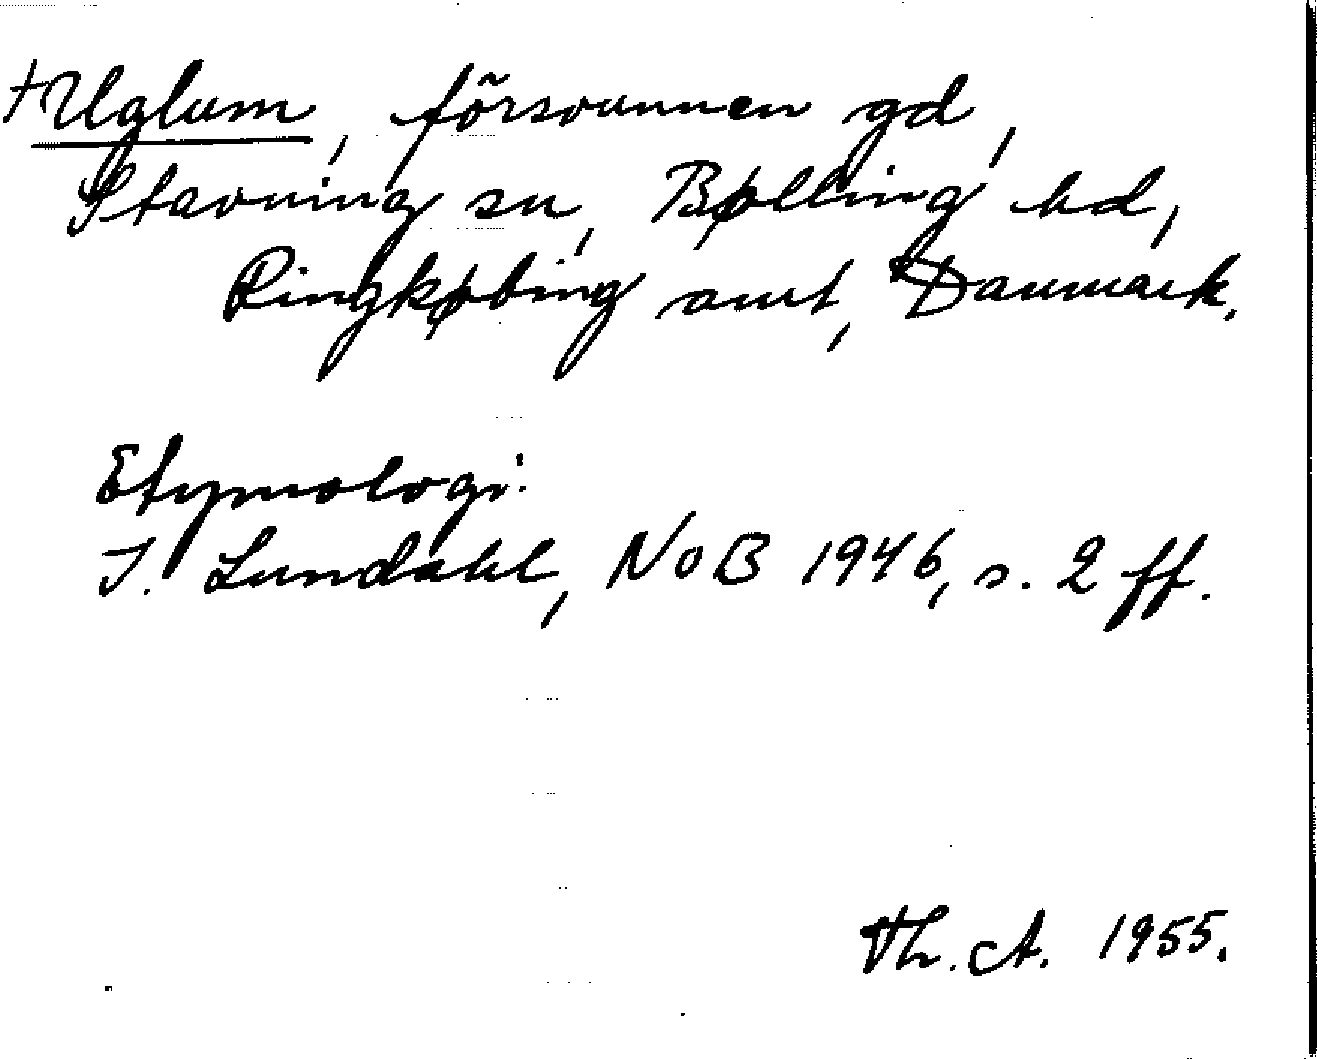 †Uglum, försvunnen gd,
Stavning sn, Bølling hd,
Ringkøbing amt, Danmark.
Etymologi:
I. Lundahl, NoB 1946, s. 2 ff.
Th. A. 1955.